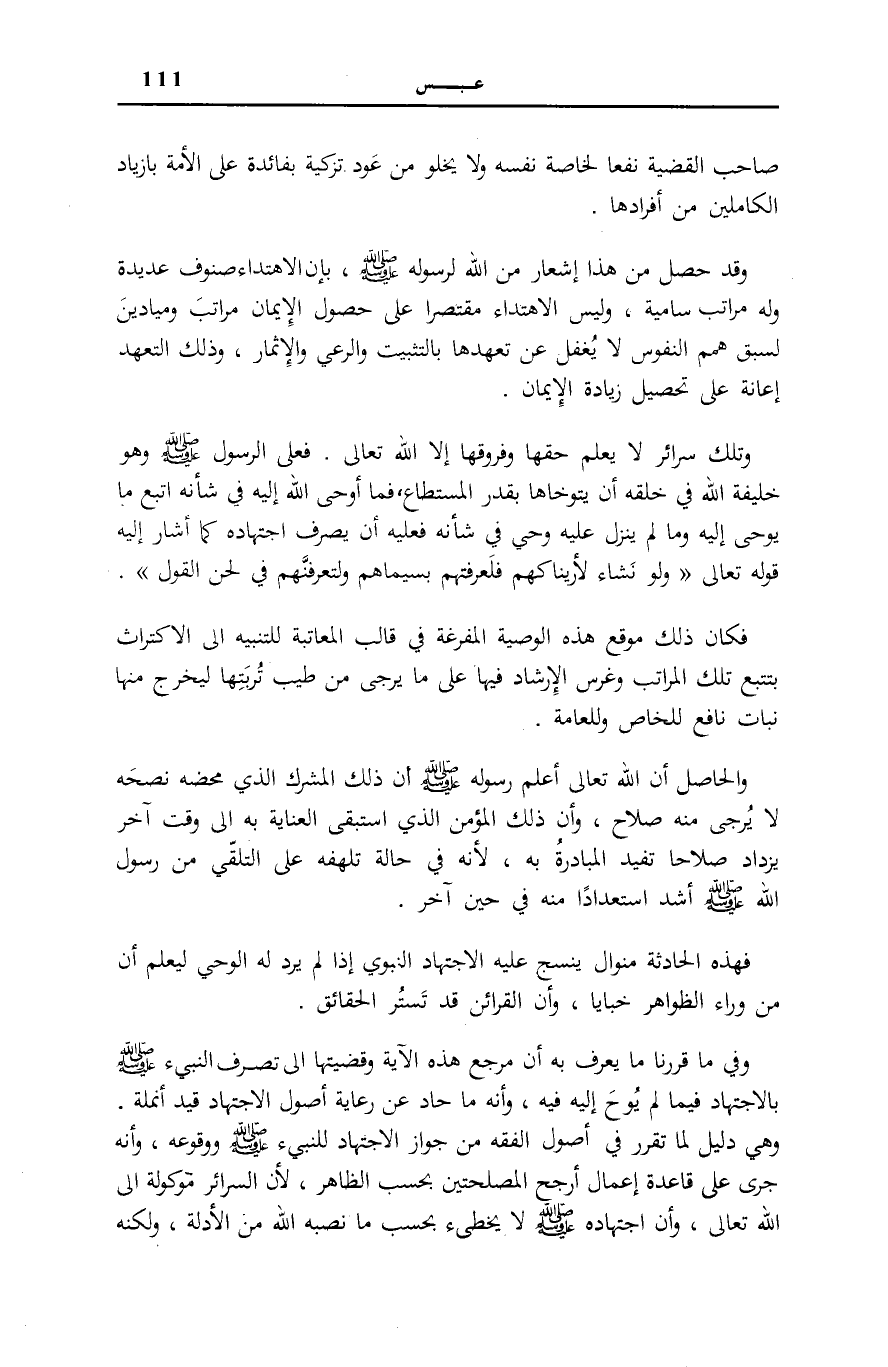 عبس 111
صاحب القضية نفعا لخاصة نفسه ولا يخلو من عَود تزكية بفائدة على الأمة بازياد
الكاملين من أفرادها .
وقد حصل من هذا إشعار من الله لرسوله ﷺ ، بإن الاهتداء صنوف عديدة
وله مراتب سامية ، وليس الاهتداء مقتصرا على حصول الإِيمان مراتبَ وميادينَ
لسبق همم النفوس لا يُغفل عن تعهدها بالتثبيت والرعي والإِثمار ، وذلك التعهد
إعانة على تحصيل زيادة الإِيمان .
وتلك سرائر لا يعلم حقها وفروقها إلا الله تعالى . فعلى الرسول ﷺ وهو
خليفة الله في خلقه أن يتوخاها بقدر المستطاع، فما أوحى الله إليه في شأنه اتبع ما
يوحى إليه وما لم ينزل عليه وحي في شأنه فعليه أن يصرف اجتهاده كما أشار إليه
قوله تعالى « ولو نَشاء لأريناكهم فلَعرفتهم بسيماهم ولتعرفنَّهم في لحن القول » .
فكان ذلك موقع هذه الوصية المفرغة في قالب المعاتبة للتنبيه الى الاكتراث
بتتبع تلك المراتب وغرس الإِرشاد فيها على ما يرجى من طيب تُربَتِها ليخرج منها
نبات نافع للخاص وللعامة .
والحاصل أن الله تعالى أعلم رسوله ﷺ أن ذلك المشرك الذي محضه نصحَه
لا يُرجى منه صلاح ، وأن ذلك المؤمن الذي استبقى العناية به الى وقت آخر
يزداد صلاحا تفيد المبادرةُ به ، لأنه في حالة تلهفه على التلقّي من رسول
الله ﷺ أشد استعدادًا منه في حين آخر .
فهذه الحادثة منوال ينسج عليه الاجتهاد النبوي إذا لم يرد له الوحي ليعلم أن
من وراء الظواهر خبايا ، وأن القرائن قد تَستُر الحقائق .
وفي ما قررنا ما يعرف به أن مرجع هذه الآية وقضيتها الى تصرف النبيء ﷺ
بالاجتهاد فيما لم يُوحَ إليه فيه ، وأنه ما حاد عن رعاية أصول الاجتهاد قيد أنملة .
وهي دليل لما تقرر في أصول الفقه من جواز الاجتهاد للنبيء ﷺ ووقوعه ، وأنه
جرى على قاعدة إعمال أرجح المصلحتين بحسب الظاهر ، لأن السرائر موكولة الى
الله تعالى ، وأن اجتهاده ﷺ لا يخطىء بحسب ما نصبه الله من الأدلة ، ولكنه